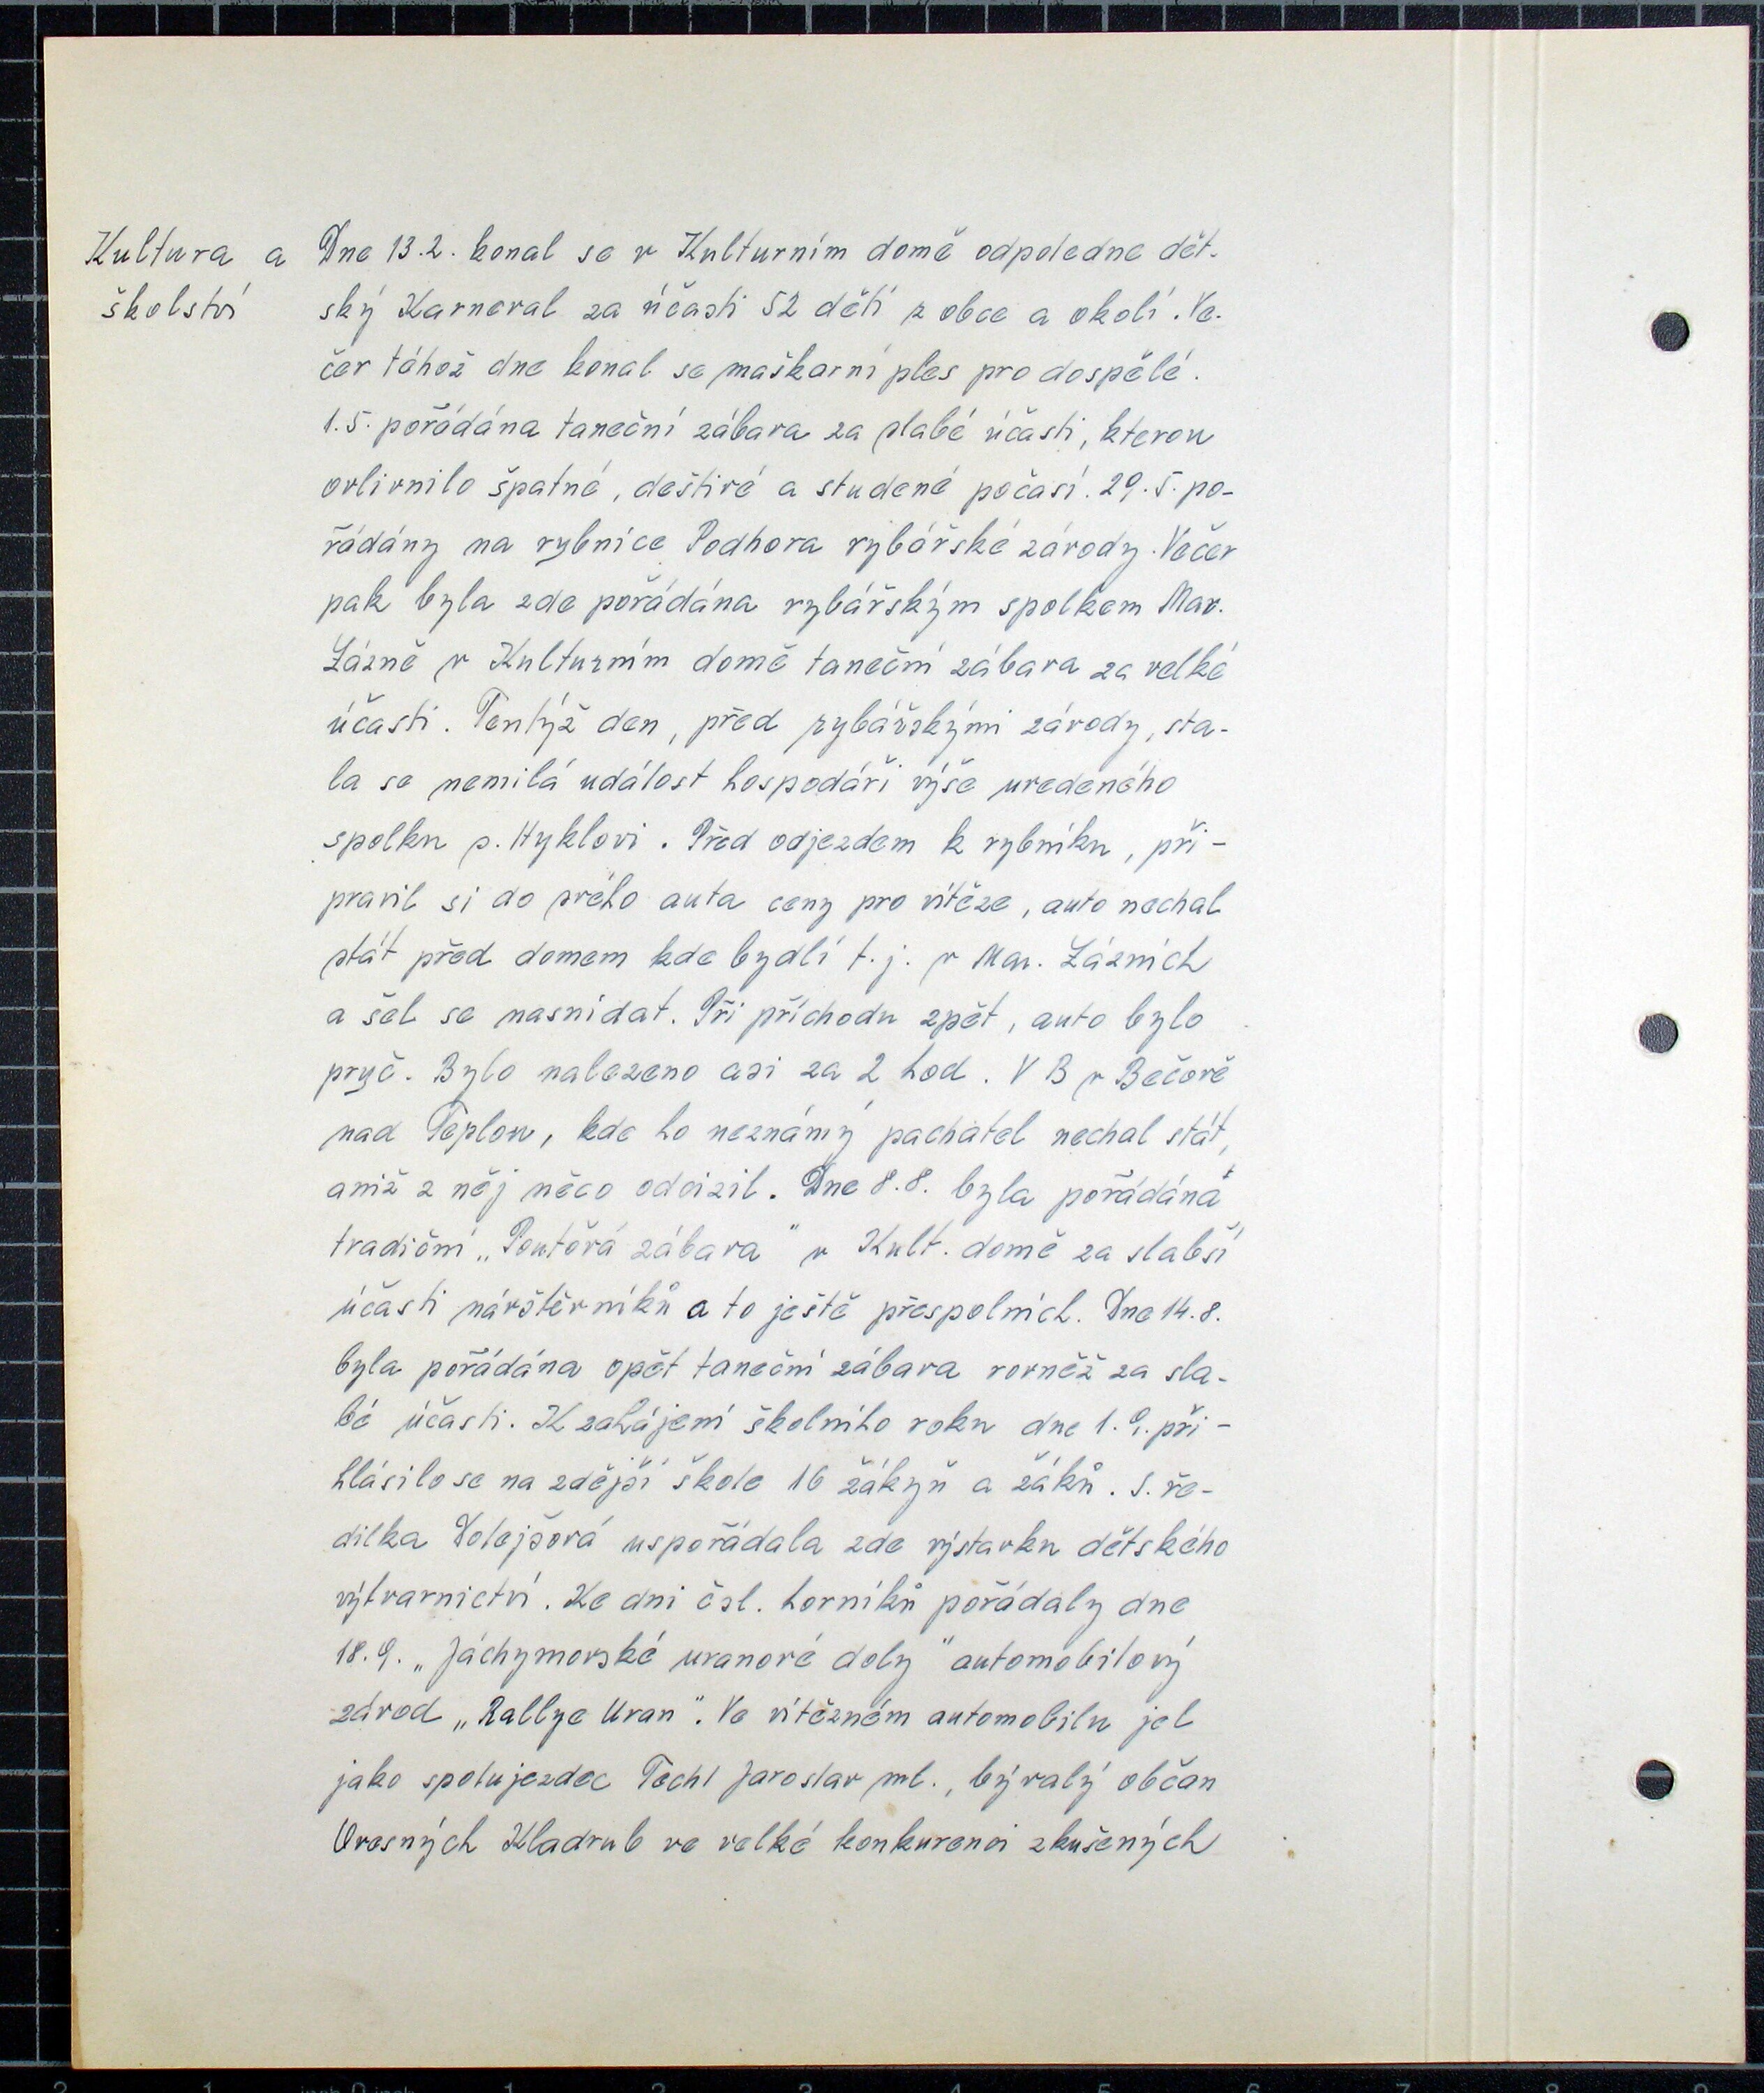 Kultura a
školství
Dne 13.2. konal se v Kulturním domě odpoledne dět-
ský Karneval za účasti 52 dětí z obce a okolí. Ve-
čer téhož dne konal se maškarní ples pro dospělé.
1.5. pořádána taneční zábava za slabé účasti, kterou
ovlivnilo špatné, deštivé a studené počasí. 29.5. po-
řádány na rybníce Podhora rybářské závody. Večer
pak byla zde pořádána rybářským spolkem Mar.
Lázně v Kulturním domě taneční zábava za velké
účasti. Tentýž den, před rybářskými závody, sta-
la se nemilá událost hospodáři výše uvedeného
spolku s. Hyklovi. Před odjezdem k rybníku, při-
pravil si do svého auta ceny pro vítěze, auto nechal
stát před domem kde bydlí t.j. v Mar. Lázních
a šel se nasnídat. Při příchodu zpět, auto bylo
pryč. Bylo nalezeno asi za 2 hod. V B v Bečově
nad Teplou, kde ho neznámý pachatel nechal stát,
aniž z něj něco odcizil. Dne 8.8. byla pořádána
tradiční „Pouťová zábava" v Kult. domě za slabší
účasti návštěvníků a to ještě přespolních. Dne 14.8.
byla pořádána opět taneční zábava rovněž za sla-
bé účasti. K zahájení školního roku dne 1.9. při-
hlásilo se na zdejší škole 16 žákyň a žáků. S. ře-
dilka Dolejšová uspořádala zde výstavku dětského
výtvarnictví. Ke dni čsl. horníků pořádaly dne
18.9. „Jáchymovské uranové doly" automobilový
závod „Rallye Uran". Ve vítězném automobilu jel
jako spolujezdec Techl Jaroslav ml., bývalý občan
Ovesných Kladrub ve velké konkurenci zkušených